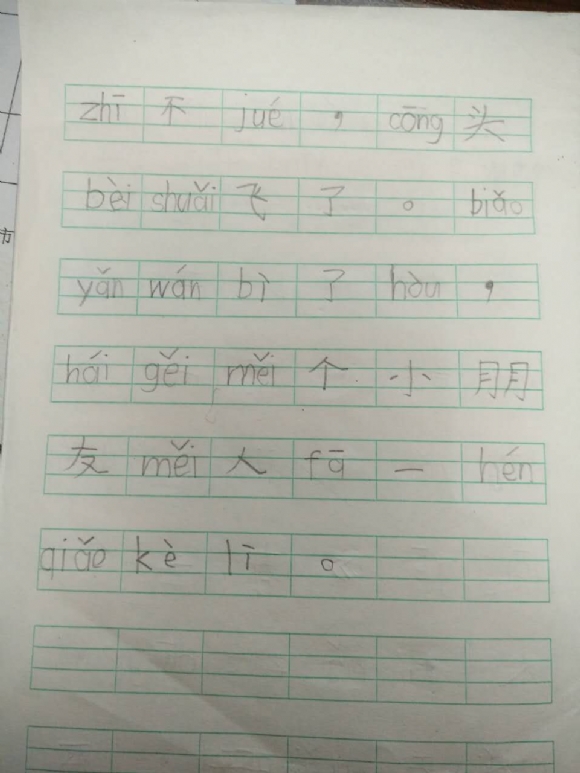 zhī 不 jué ， cōng 头
bèi shuǎi 飞 了 。 biǎo
yǎn wán bì 了 hòu ，
hái gěi měi 个 小 朋
友 měi 人 fā 一 hén
qiǎo kè lì 。